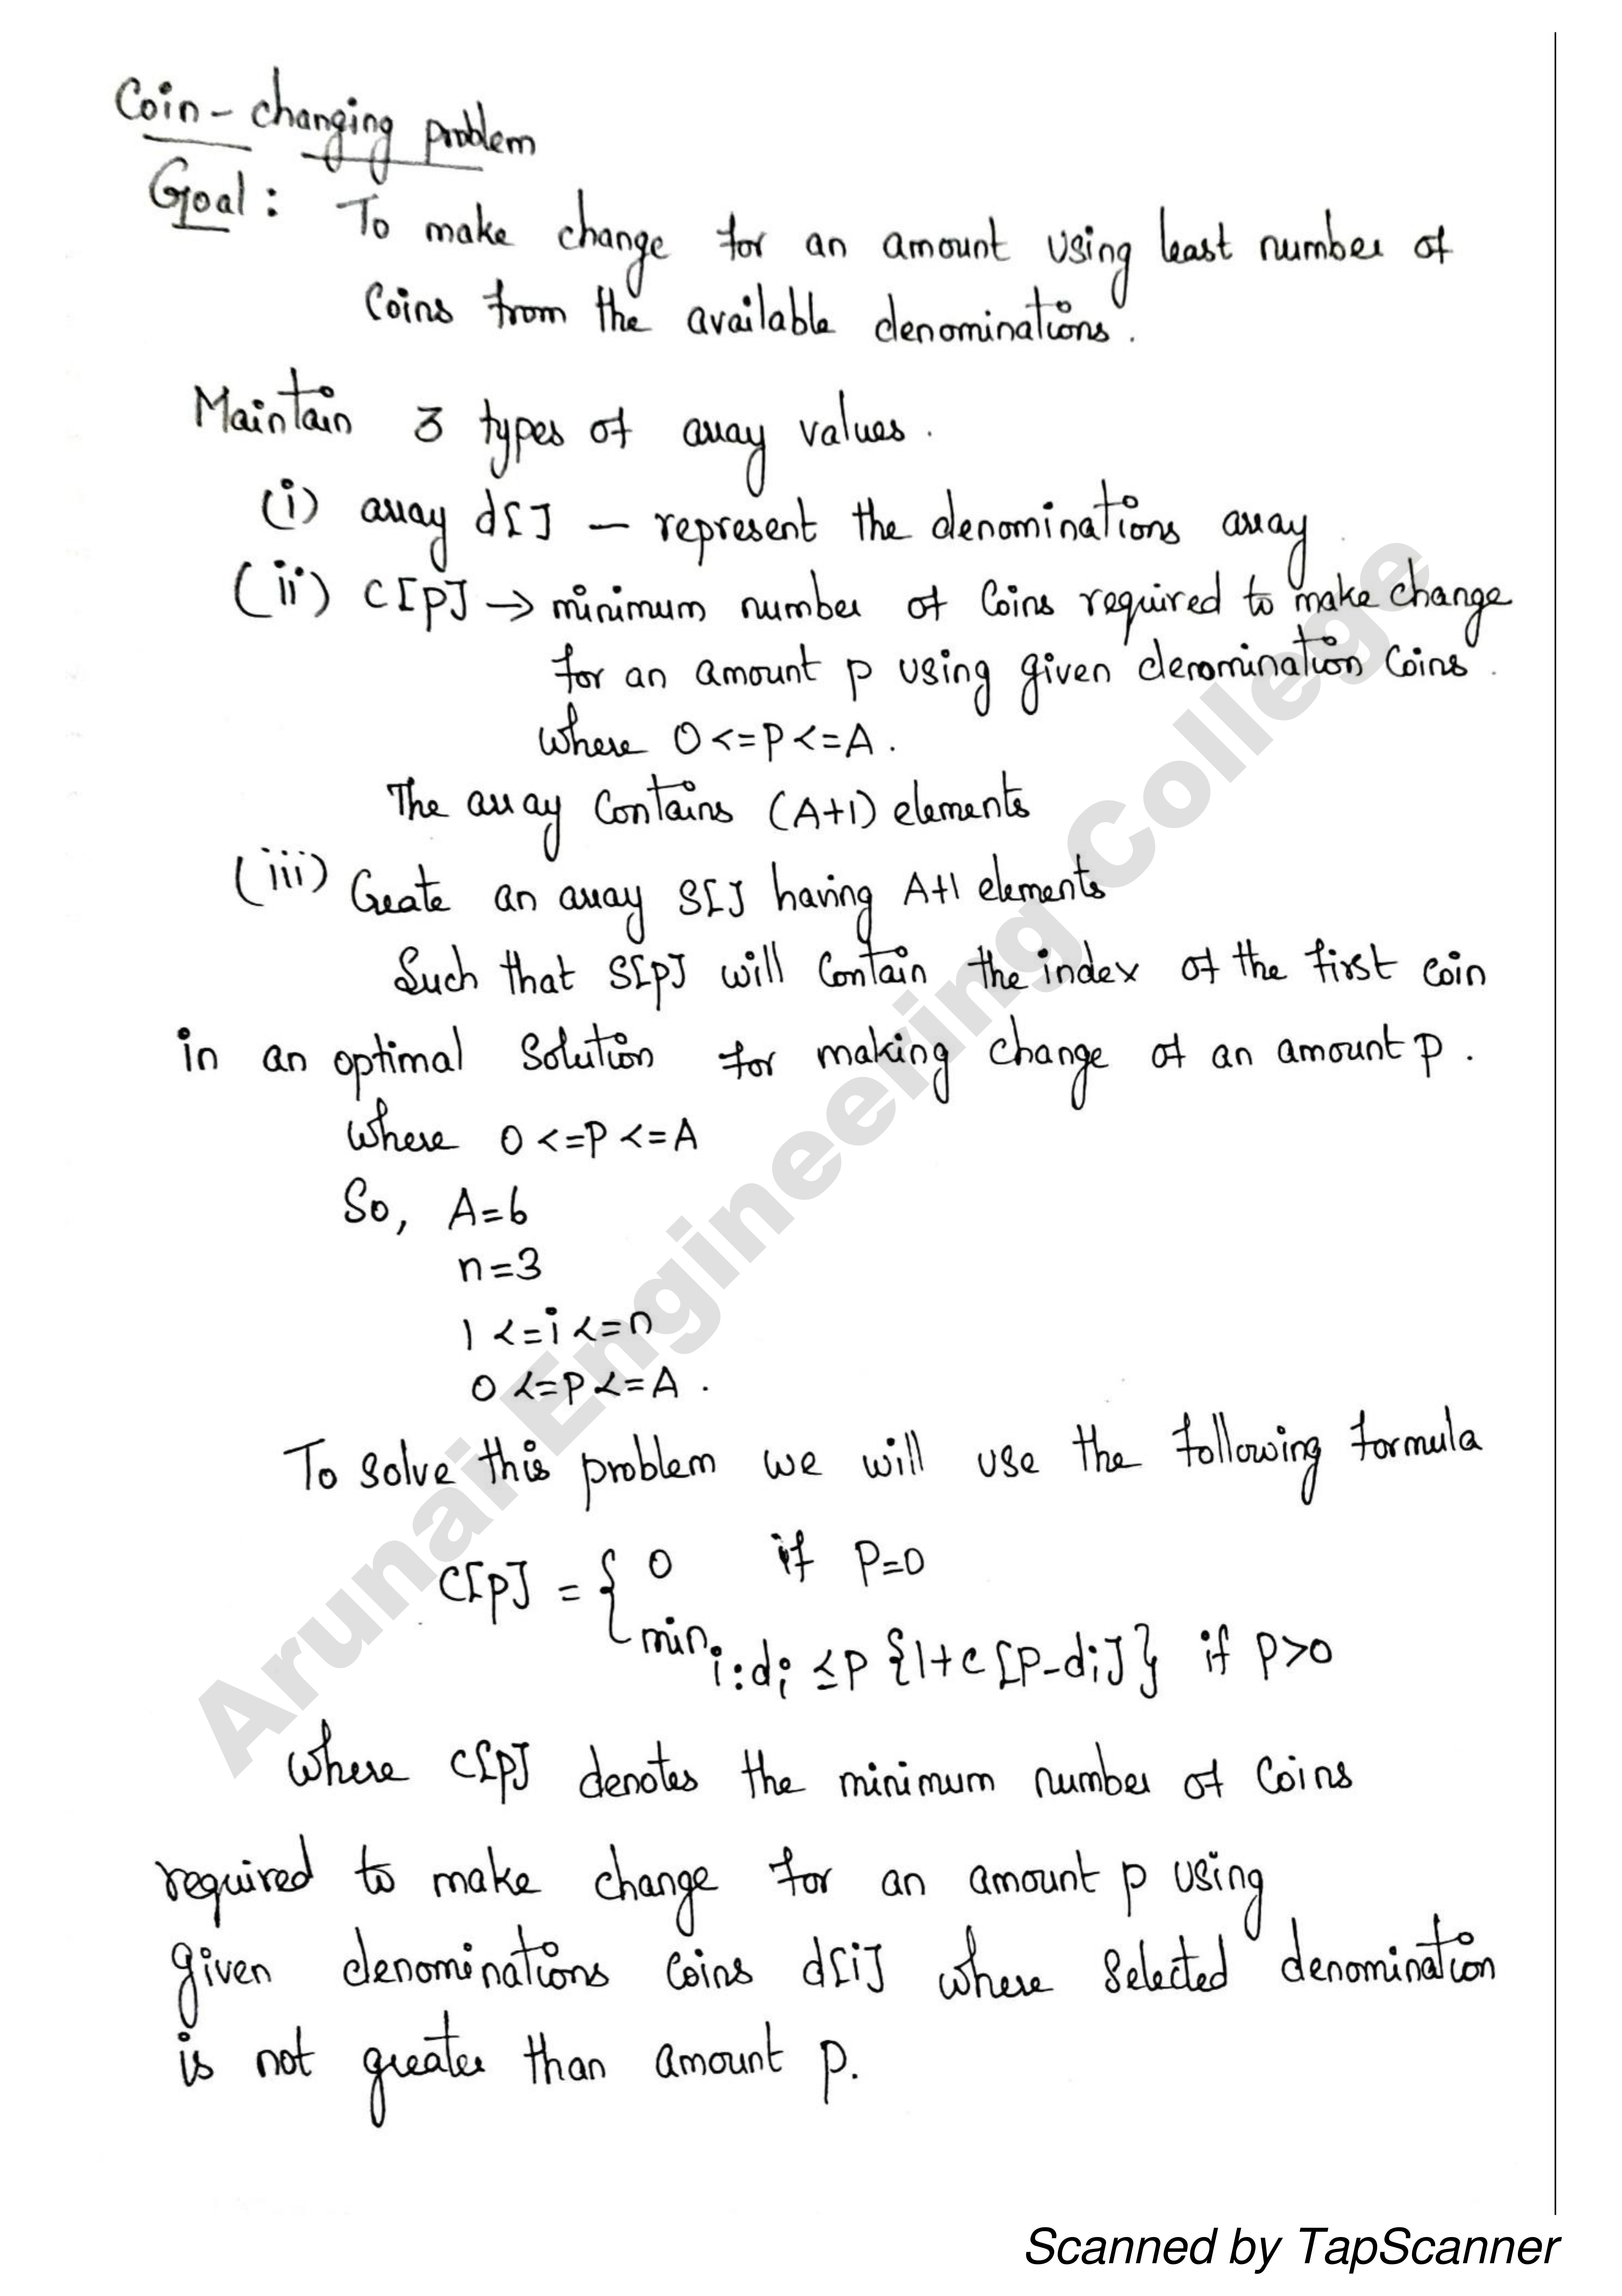 Coin - changing problem
Goal : To make change for an amount using least number of
Coins from the available denominations.
Maintain 3 types of array values.
(i) array d[] — represent the denominations array
(ii) C[p] → minimum number of Coins required to make change
for an amount p using given denomination Coins.
Where 0 <= P <= A.
The array Contains (A+1) elements
(iii) Create an array S[] having A+1 elements
Such that S[p] will Contain the index of the first coin
in an optimal Solution for making change of an amount p.
Where 0 <= P <= A
So, A=6
n=3
1 <= i <= n
0 <= P <= A.
To solve this problem we will use the following formula
C[p] = { 0 if P=0
min i:di ≤ p {1+c[p-di]} if p>0
Where C[p] denotes the minimum number of Coins
required to make change for an amount p using
given denominations Coins d[i] where Selected denomination
is not greater than amount p.
Arunai Engineering College
Scanned by TapScanner